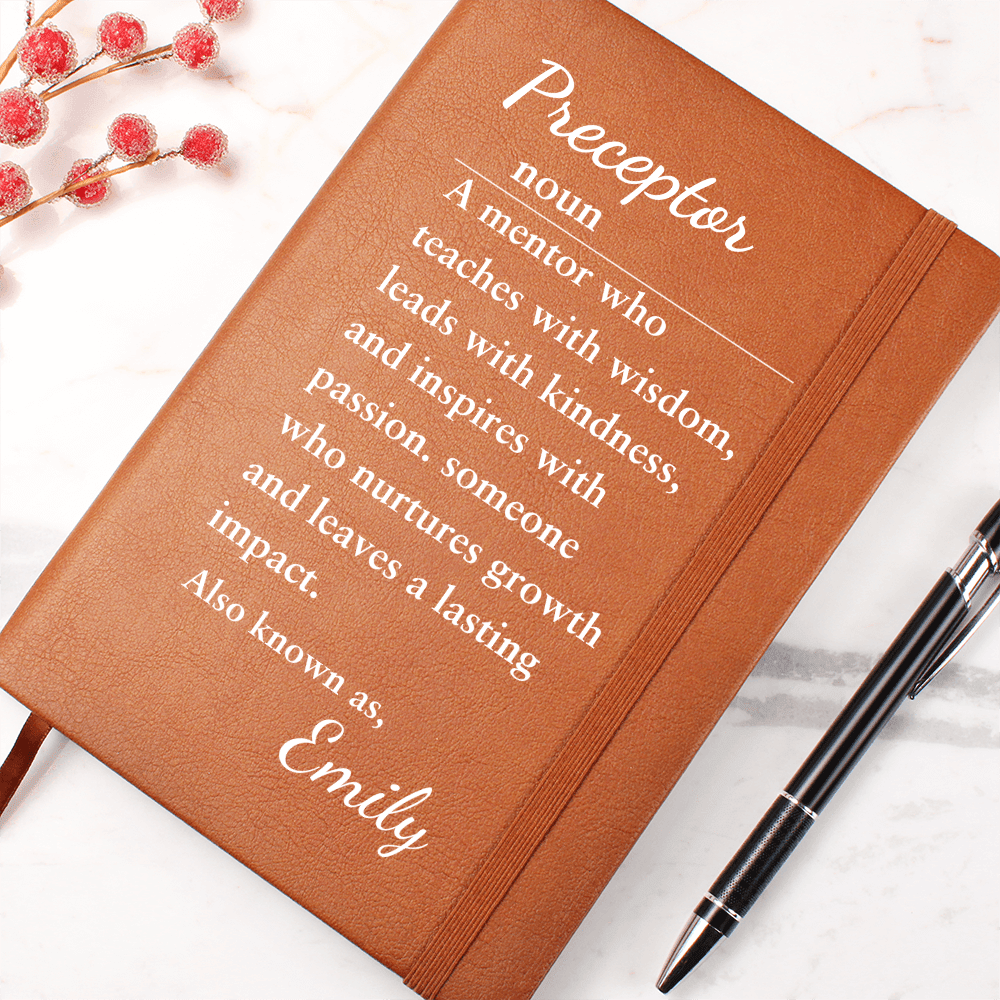 Preceptor
noun
A mentor who
teaches with wisdom,
leads with kindness,
and inspires with
passion. someone
who nurtures growth
and leaves a lasting
impact.
Also known as,
Emily